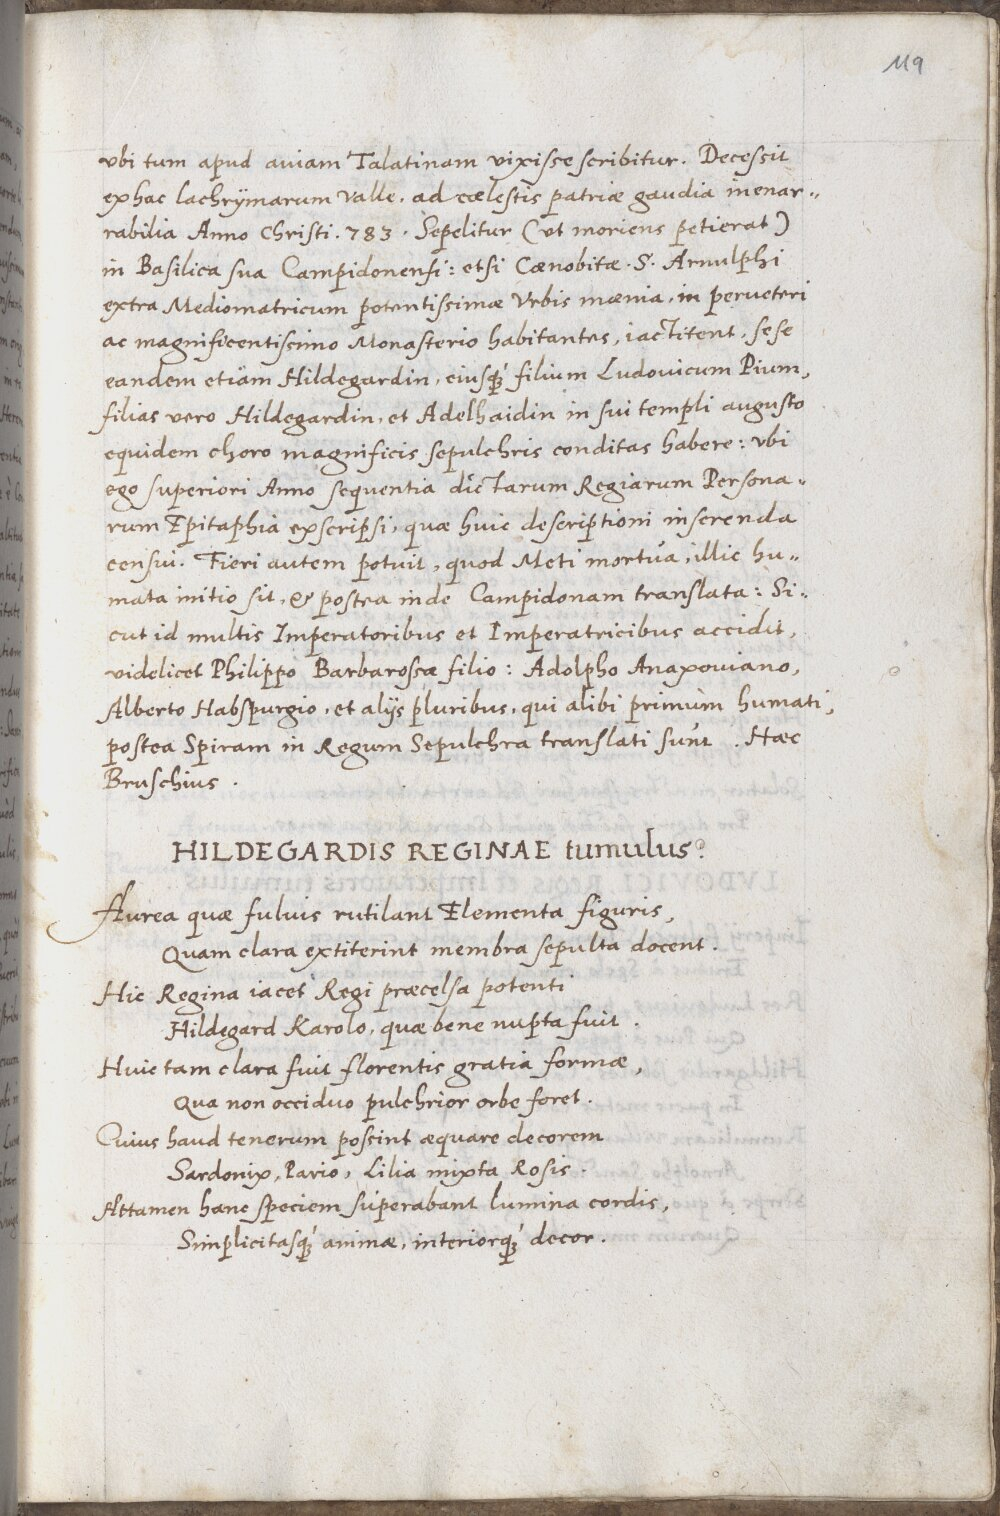 119
vbi tum apud auiam Talatinam vixisse scribitur. Decessit
ex hac lachrÿmarum valle, ad cælestis patriæ gaudia inenar„
rabilia Anno Christi. 783. Sepelitur (ut moriens petierat)
in Basilica sua Campidonensi: etsi Cænobitæ. S. Arnulphi
extra Mediomatricum potentissimæ Vrbis mænia, in perueteri
ac magnificentissimo Monasterio habitantes, iactitent, sese
eandem etiam Hildegardin, eiusq́ꝫ filium Ludouicum Pium,
filias vero Hildegardin, et Adelhaidin in sui templi augusto
equidem choro magnificis sepulchris conditas habere: vbi
ego superiori Anno sequentia dictarum Regiarum Persona„
rum Epitaphia exscripsi, quæ huic descriptioni inserenda
censui. Fieri autem potuit, quod Meti mortua, illic hu„
mata initio sit, & postea inde Campidonam translata: Si„
cut id multis Imperatoribus et Imperatricibus accidit,
videlicet Philippo Barbarossæ filio: Adolpho Anaxouiano,
Alberto Habspurgio, et alijs pluribus, qui alibi primùm humati,
postea Spiram in Regum Sepulchra translati sunt. Hæc
Bruschius.
HILDEGARDIS REGINAE tumulus.
Aurea quæ fuluis rutilant Elementa figuris,
Quam clara extiterint membra sepulta docent.
Hic Regina iacet Regi præcelsa potenti
Hildegard Karolo, quæ bene nupta fuit.
Huic tam clara fuit florentis gratia formæ,
Qua non occiduo pulchrior orbe foret.
Cuius haud tenerum possint æquare decorem
Sardonix, Pario, Lilia mixta Rosis.
Attamen hanc speciem superabant lumina cordis,
Simplicitasq́ꝫ animæ, interiorq́ꝫ decor.